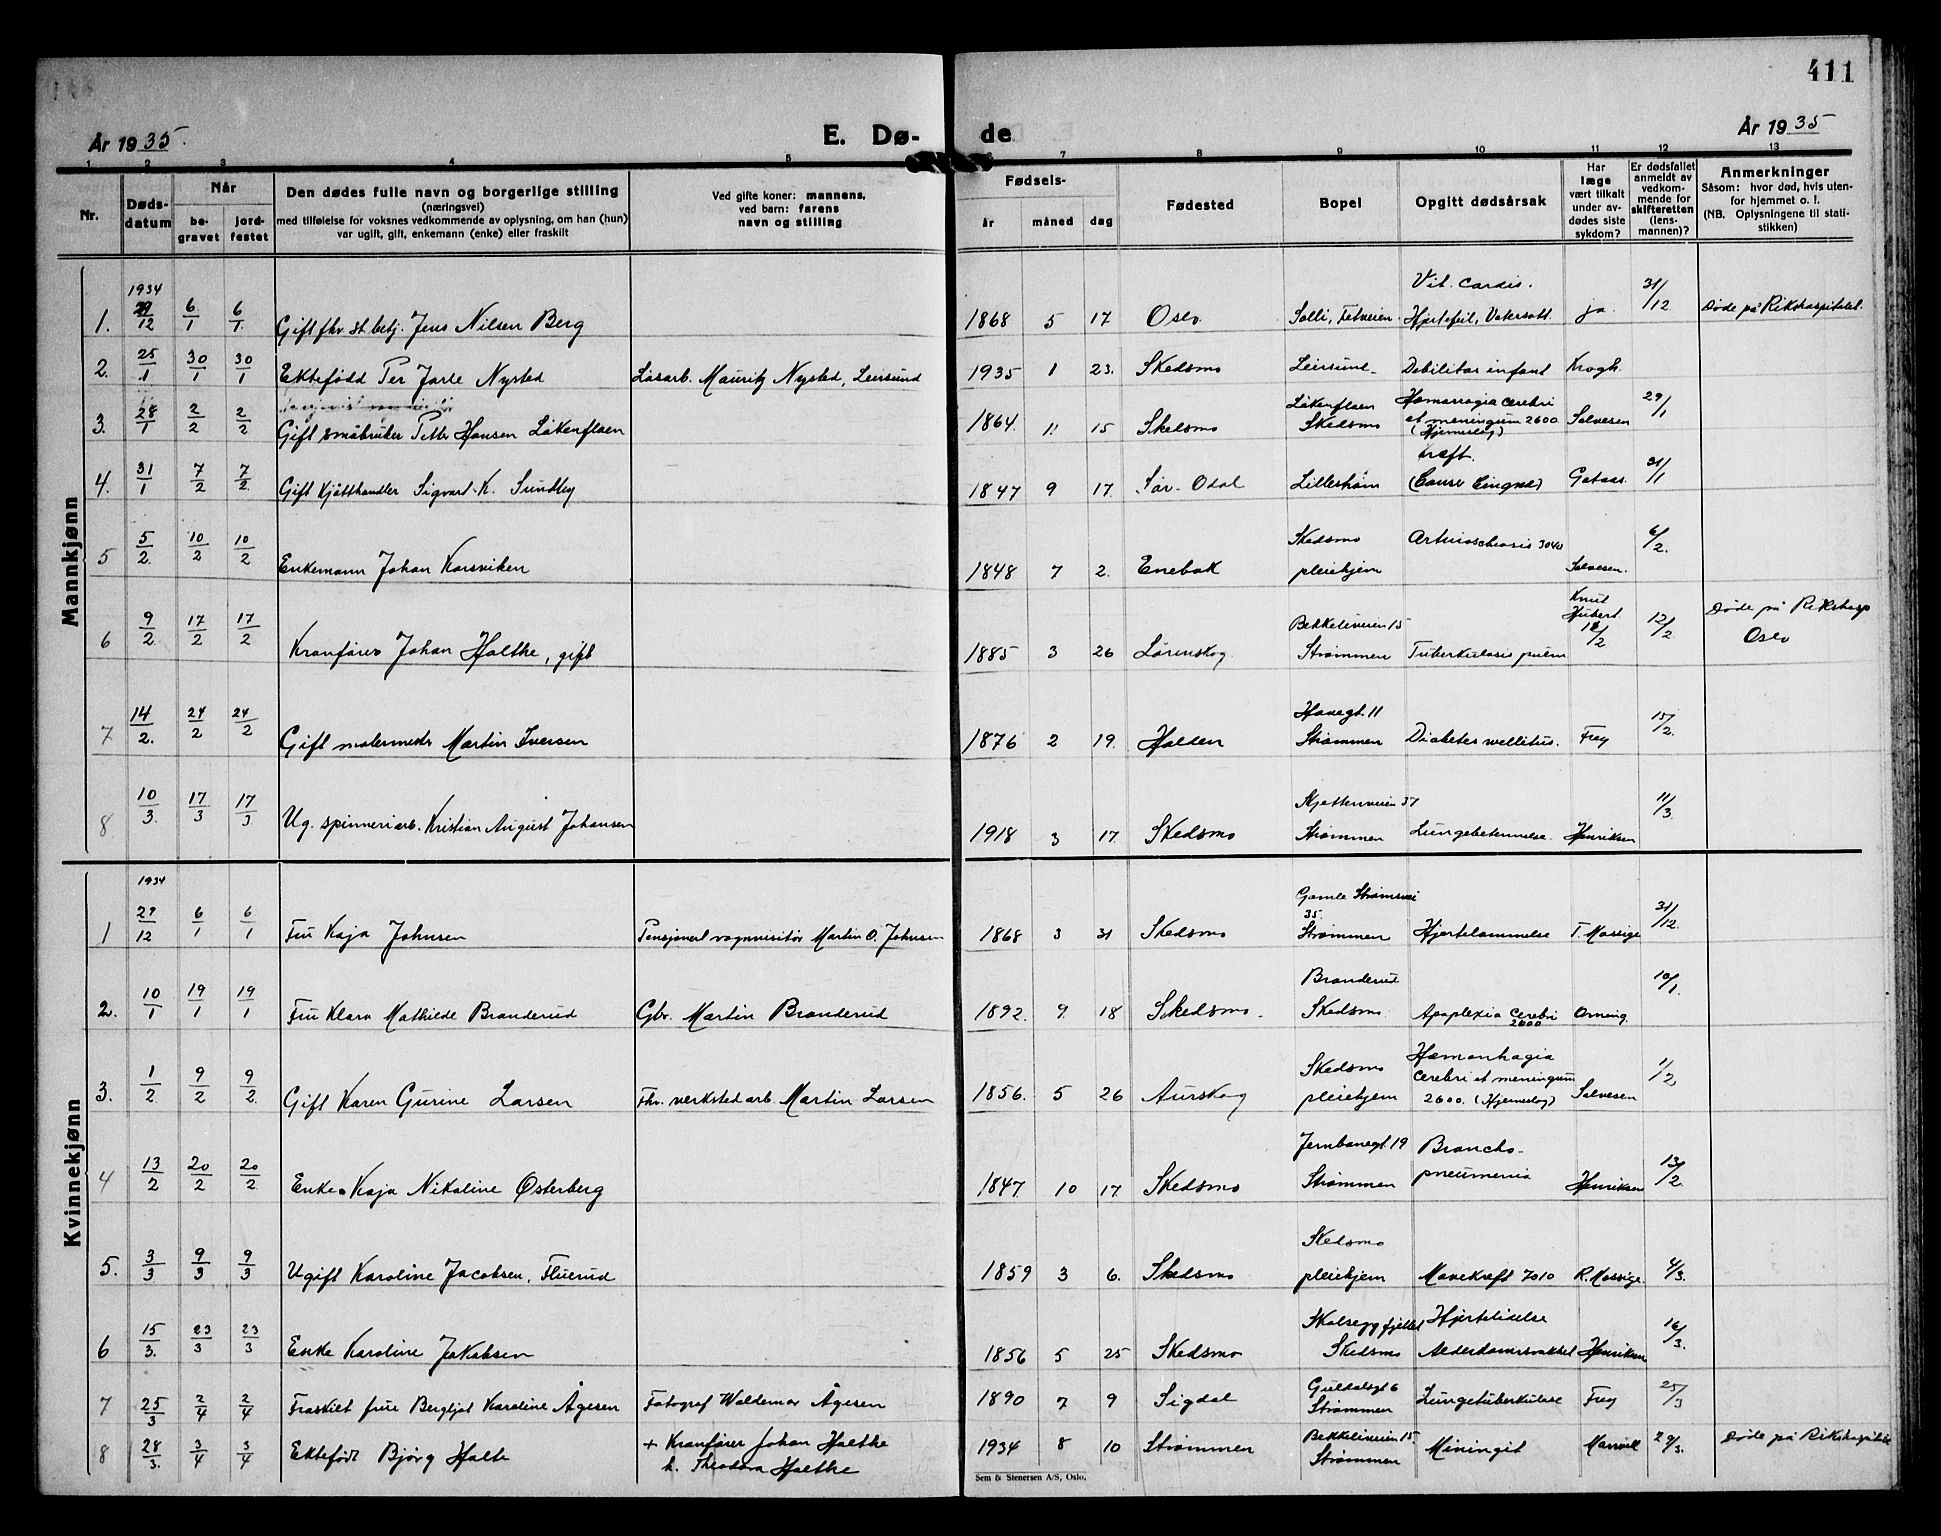 411
År 1935.
E. Dø-
de
År 1935
1 2 3 4 5 6 7 8 9 10 11 12 13
Nr.
Døds-
datum
Når
be-
gravet
jord-
festet
Den dødes fulle navn og borgerlige stilling
(næringsvei)
med tilføielse for voksnes vedkommende av oplysning, om han (hun)
var ugift, gift, enkemann (enke) eller fraskilt
Ved gifte koner: mannens,
ved barn: farens
navn og stilling
Fødsels-
år måned dag
Fødested
Bopel
Opgitt dødsårsak
Har
læge
vært tilkalt
under av-
dødes siste
sykdom?
Er dødsfallet
anmeldt av
vedkom-
mende for
skifteretten
(lens-
mannen)?
Anmerkninger
Såsom: hvor død, hvis uten-
for hjemmet o. l.
(NB. Oplysningene til stati-
stikken)
Mannkjønn
1934
1. 29/12 6/1 6/1 Gift fhv. st.betj. Jens Nilsen Berg 1868 5 17 Oslo Solli, Fetveien Vit. cordis.
Hjertefeil, Vatersott ja 31/12 Døde på Rikshospitalet
2. 25/1 30/1 30/1 Ektefødd Per Jarle Nysted Løsarb. Mauritz Nysted, Leirsund 1935 1 23. Skedsmo Leirsund Debilitas infant Krogh.
3. 28/1 2/2 2/2 Gift småbruker Petter Hansen Løkenflaen 1864. 11. 15 Skedsmo Løkenflaen
Skedsmo Hæmorragia cerebri
et meningum 2600
(Hjerneslag) Salvesen 29/1
4. 31/1 7/2 7/2 Gift Kjøtthandler Sigvart. K. Sundby 1847 9 17. Sør-Odal Lillestrøm Kræft.
(Cancer Lingvæ) Gataas. 31/1
5 5/2. 10/2 10/2 Enkemann Johan Korsviken 1848 7 2. Enebak Skedsmo
pleiehjem 3040 Salvesen. 6/2.
6 9/2. 17/2 17/2 Kranfører Johan Holtke, gift 1885 3 26 Lørenskog. Bekkeliveien 15
Strømmen Tuberkulosis pulm Knut
Hubert
12/2 Døde på Rikshosp
Oslo
7 14/2. 24/2 24/2 Gift malermestr Martin Iversen 1876 2 19. Halden Havegt. 11
Strømmen Diabetes mellitus. Frey 15/2.
8 10/3. 17/3 17/3 Ug. spinneriarb. Kristian August Johansen 1918 3 17. Skedsmo Skjettenveien 37
Strømmen Lungebetennelse. Henriksen 11/3.
Kvinnekjønn
1934
1 29/12 6/1 6/1 Fru Kaja Johnsen Pensjonert vognvisitør Martin O. Johnsen 1868 3 31 Skedsmo Gamle Strømsvei
35.
Strømmen Hjertelammelse T. Mossige 31/12.
2. 10/1 19/1 19/1 Fru Klara Mathilde Branderud Gbr. Martin Branderud 1892. 9. 18 Skedsmo. Branderud
Skedsmo. Apoplexia cerebri
2600 Orning. 10/1.
3. 1/2. 9/2 9/2. Gift Karen Gurine Larsen Fhv. verkstedarb. Martin Larsen 1856. 5 26 Aurskog Skedsmo
pleiehjem Hæmorrhagia
cerebri et meningum
2600. (Hjerneslag) Salvesen 1/2
4 13/2 20/2 20/2. Enke Kaja Nikoline Østerberg 1847. 10 17. Skedsmo Jernbanegt. 19
Strømmen Broncho-
pneumonia Henriksen 13/2.
5. 3/3 9/3 9/3 Ugift Karoline Jacobsen, Fluerud 1859 3 6. Skedsmo Skedsmo
pleiehjem Mavekræft 7010 R. Mossige. 4/3.
6 15/3. 23/3 23/3 Enke Karoline Jakobsen 1856 5 25 Skedsmo Skolseggfjellet
Skedsmo Hjertelidelse
Alderdomssvakhet Henriksen 16/3.
7 25/3 2/4 2/4 Fraskilt frue Bergljot Karoline Ågesen Fotograf Waldemar Ågesen 1890 7 9 Sigdal Guldalsgt 6
Strømmen Lungetuberkulose Frey 25/3
8 28/3. 3/4 3/4 Ektefødt Bjørg Holte + Kranfører Johan Holtke
h. Theodora Holtke 1934 8 10 Strømmen Bekkeliveien 15.
Strømmen Miningit 29/3. Døde på Rikshospitalet
Sem & Stenersen A/S, Oslo.